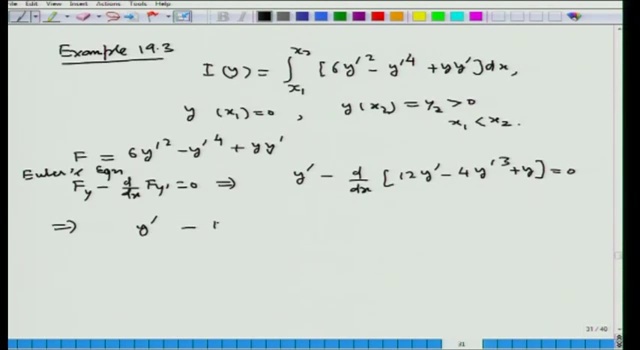 Edit View Insert Actions Tools Help
Example 19.3
I(y) = ∫_{x₁}^{x₂} [6y'² - y'⁴ + yy']dx,
y(x₁) = 0, y(x₂) = y₂ > 0
x₁ < x₂.
F = 6y'² - y'⁴ + yy'
Euler's Eqn
F_y - d/dx F_y' = 0 ⇒ y' - d/dx [12y' - 4y'³ + y] = 0
⇒ y' -
31 / 40
31